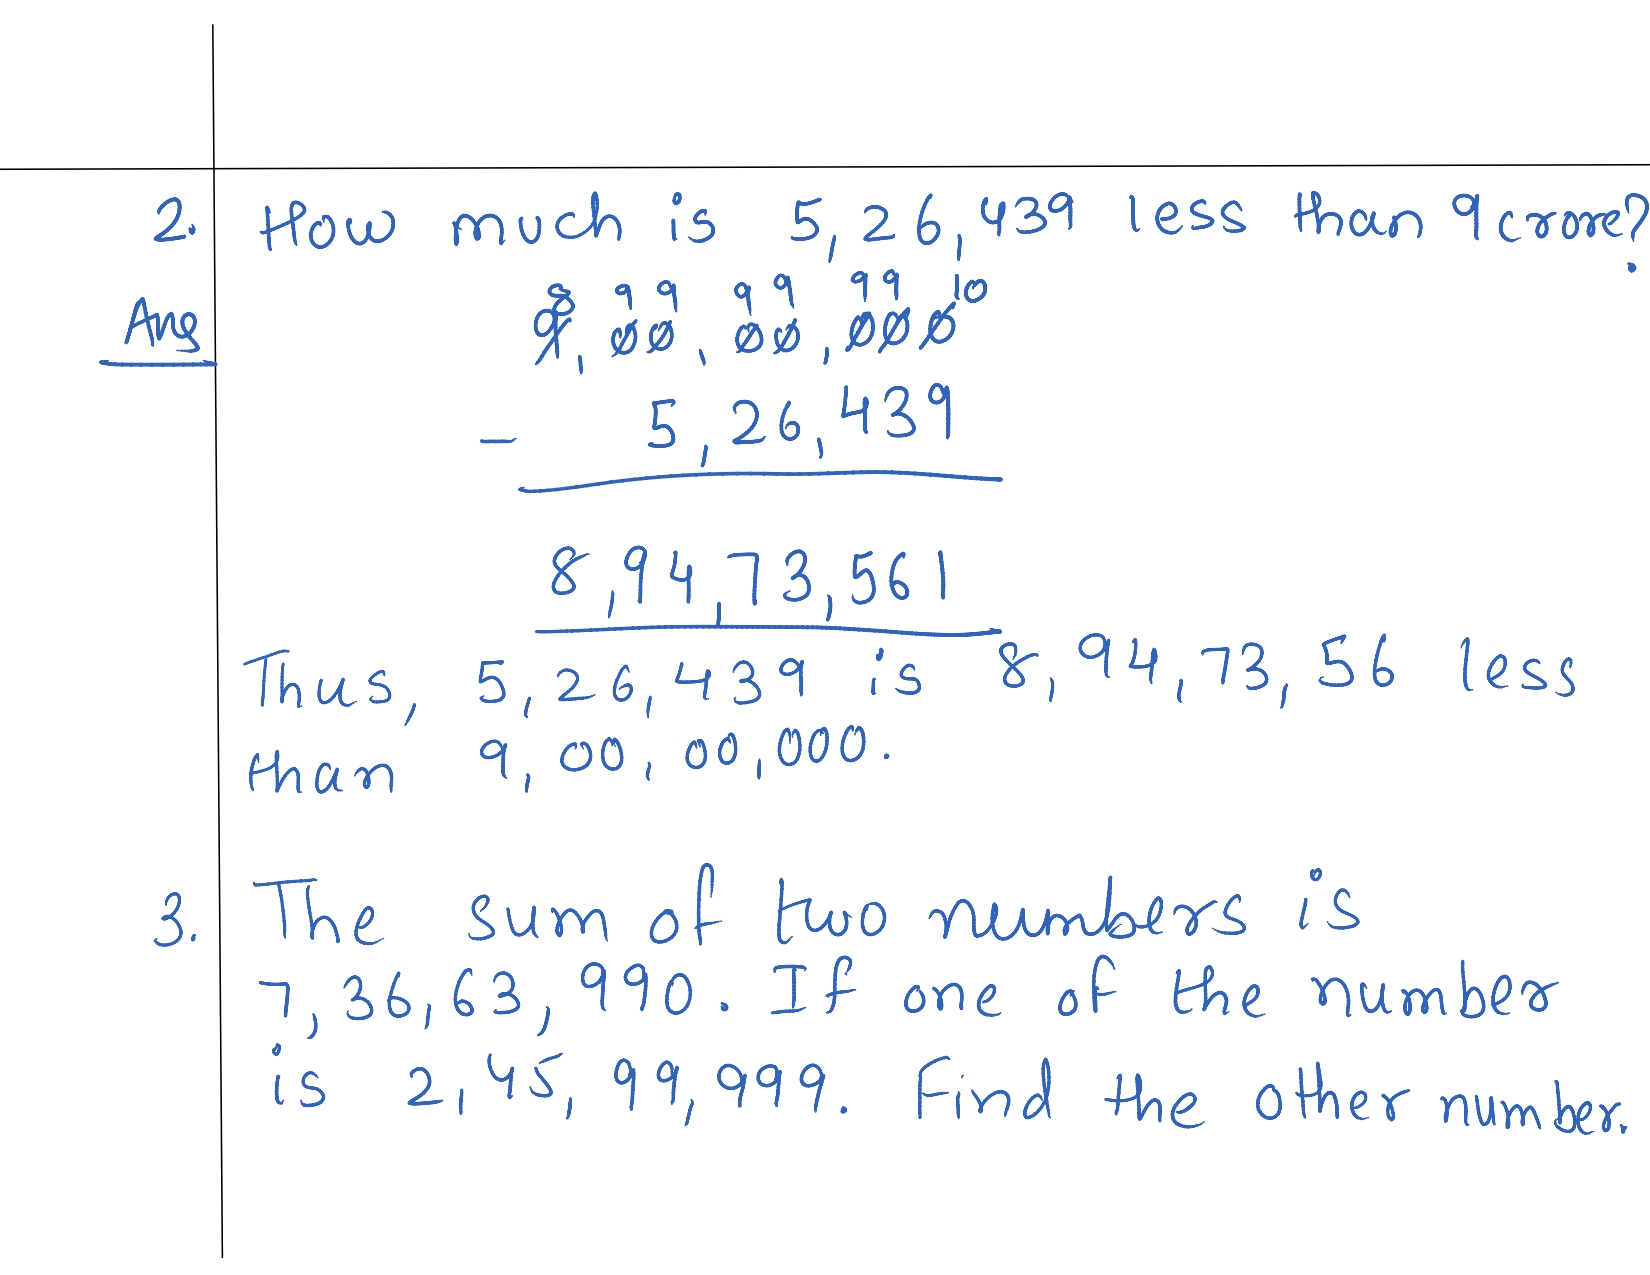 2. How much is 5,26,439 less than 9 crore?
Ans
8 99 99 99 10
9,00,00,000
- 5,26,439
8,94,73,561
Thus, 5,26,439 is 8,94,73,56 less
than 9,00,00,000.
3. The sum of two numbers is
7,36,63,990. If one of the number
is 2,45,99,999. Find the other number.